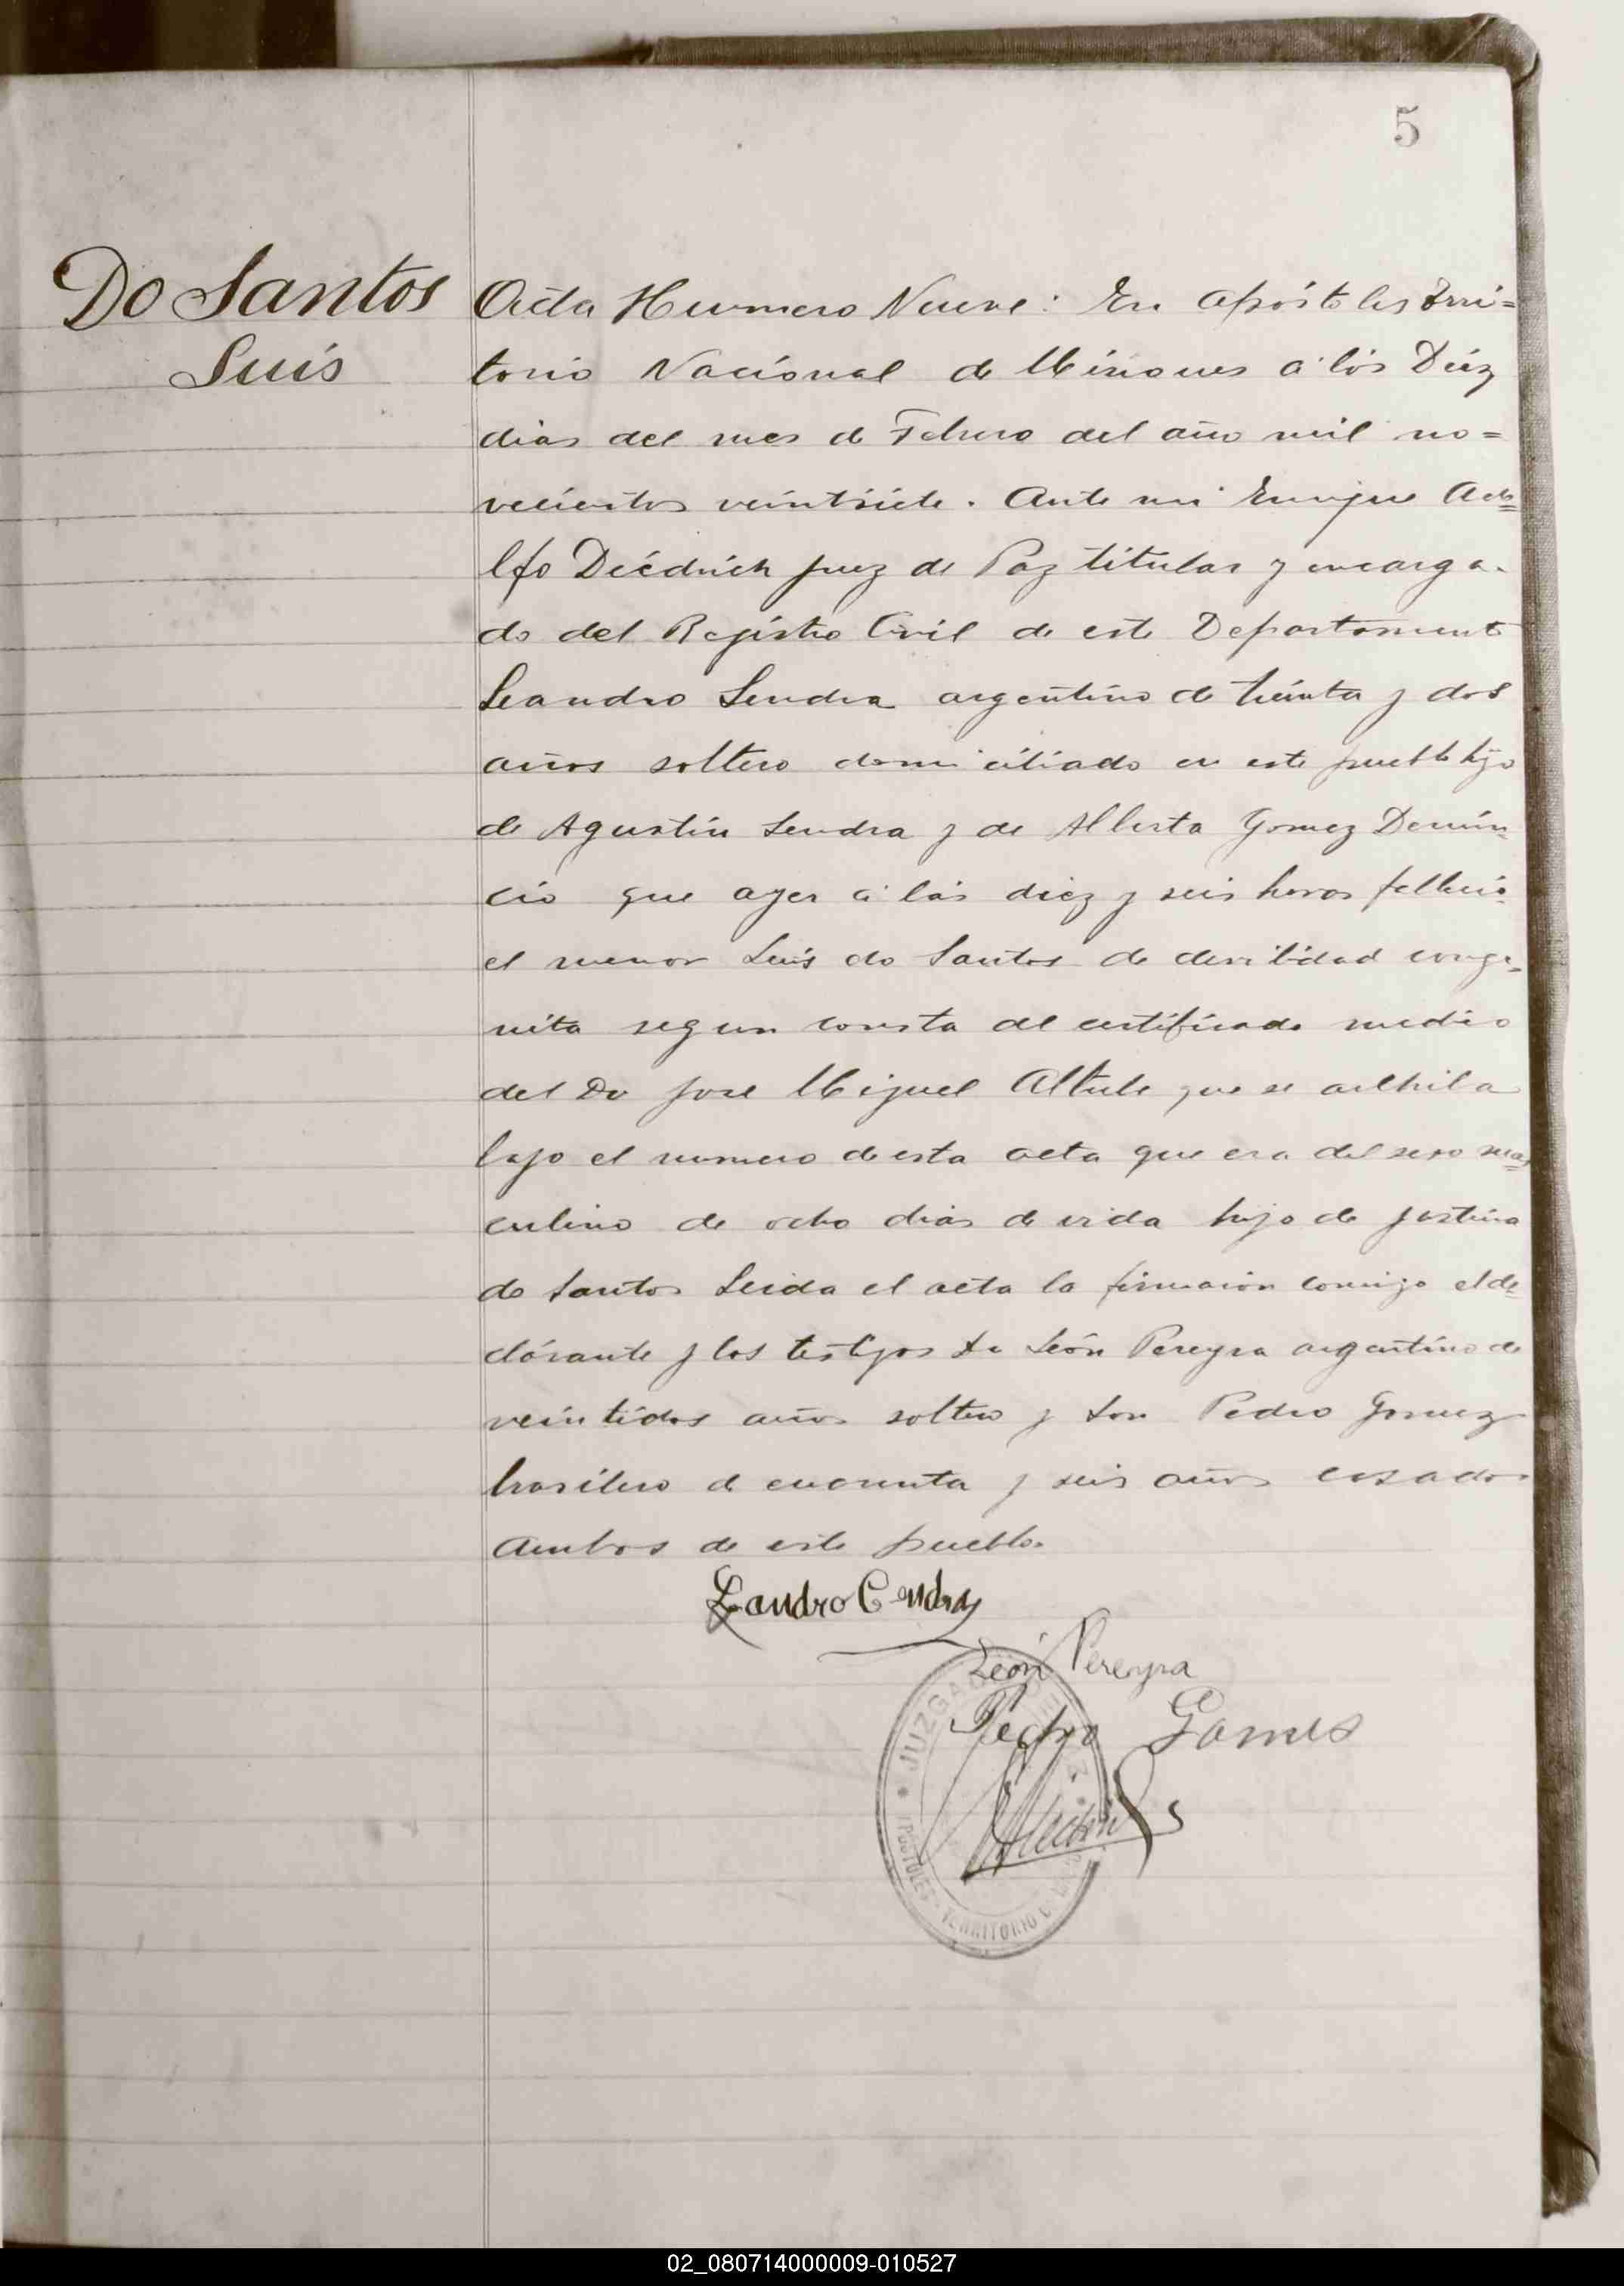 5
Do Santos
Luis
Acta Numero Nueve: En Apóstoles Terri=
torio Nacional de Misiones á los Diéz
dias del mes de Febrero del año mil no=
vecientos veintisiete. Ante mi Enrique Ado=
lfo Diedrich juez de Paz titular y encarga-
do del Registro Civil de este Departamento
Leandro Sendra argentino de treinta y dos
años soltero domiciliado en este pueblo hijo
de Agustin Sendra y de Alberta Gomez Denun-
ció que ayer á las diez y seis horas fallició
el menor Luis do Santos de devilidad conge-
nita segun consta del certificado medico
del Dr Jose Miguel que se archiba
bajo el numero de esta acta que era del sexo mas=
culino de ocho dias de vida hijo de Justina
do Santos Leida el acta la firmaron conmigo el de-
clárante y los testigos Dn León Pereyra argentino de
veintidos años soltero y Don Pedro Gomez
brasilero de cuarenta y seis años casado
Ambos de este pueblo.
Leandro Cendra
León Pereyra
Pedro Gomes
JUZGADO DE PAZ
APOSTOLES TERRITORIO
02_080714000009-010527